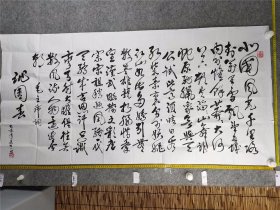 北国风光千里冰
封万里雪飘望长城
内外惟余莽莽大河
上下顿失滔滔山舞银
蛇原驰蜡象欲与天
公试比高须晴日看
红装素裹分外妖娆
江山如此多娇引无
数英雄竞折腰惜秦
皇汉武略输文采唐
宗宋祖稍逊风骚一代
天骄成吉思汗只识
弯弓射大雕俱往矣
数风流人物还看今
朝 毛主席词
沁园春